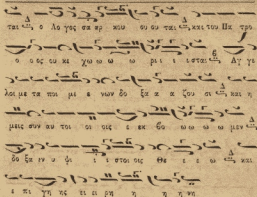 ται, ο Λο γος σα αρ κου ου ου ται, και του Πα τρο
ο ο ος ου κε χω ω ω ω ρι ι ι σται Αγ γε
λοι με τα ποι με ε νων δο ξα α α ζου σι και η
μεις συν αυ τοι οι οις ε εκ βο ω ω ω ω μεν
δο ξα εν υ ψι ι ι στοις Θε ε ε ω και
ε πι γης ει ει ρη η η η νη